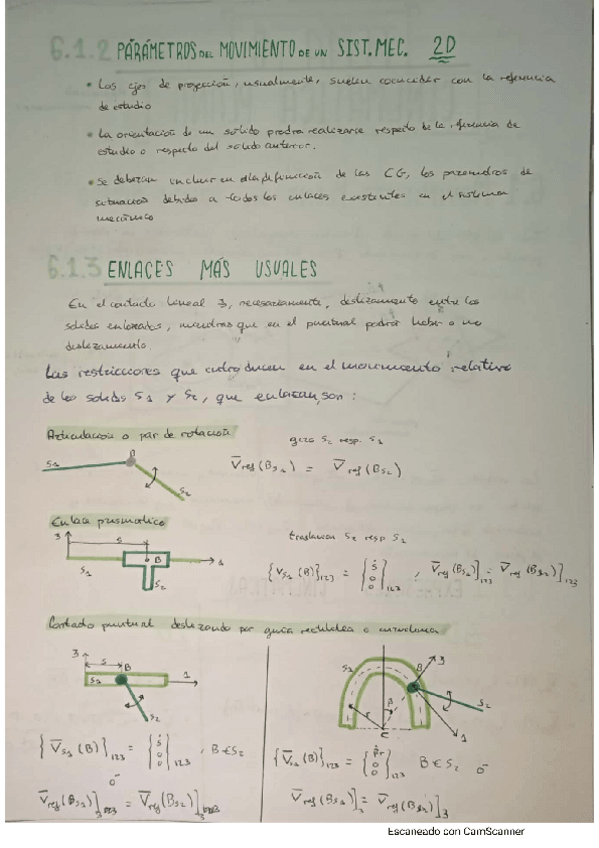 6.1.2 PARÁMETROS DEL MOVIMIENTO DE UN SIST. MEC. 2D
• Los ejes de proyección, usualmente, suelen coincidir con la referencia
de estudio
• La orientación de un sólido podrá realizarse respecto de la referencia de
estudio o respecto del sólido anterior.
• Se deberán incluir en la definición de las CG, los parámetros de
situación debidos a todos los enlaces existentes en el sistema
mecánico
6.1.3 ENLACES MÁS USUALES
En el contacto lineal, necesariamente, deslizamiento entre los
sólidos enlazados, mientras que en el puntual podrá haber o no
deslizamiento.
Las restricciones que introducen en el movimiento relativo
de los solidos S1 y S2, que enlazan, son:
Articulación o par de rotación
giro S2 resp. S1
S1 B S2
V̅ref(BS1) = V̅ref(BS2)
Enlace prismático
traslación S2 resp S2
3 S B 1 S1 S2
{VS1(B)}123 = {ṡ 0 0}123 , V̅ref(BS1)]123 = V̅ref(BS2)]123
Contacto puntual deslizando por guía rectilínea o curvilínea
3 S B 1 S1 S2
S1 B 3 S2 r β C 1
{V̅S1(B)}123 = {ṡ 0 0}123 , B∈S2
{V̅S1(B)}123 = {β̇r 0 0}123 B∈S2 ó
ó
V̅ref(BS1)]3 = V̅ref(BS2)]3
V̅ref(BS1)]3 = V̅ref(BS2)]3
Escaneado con CamScanner